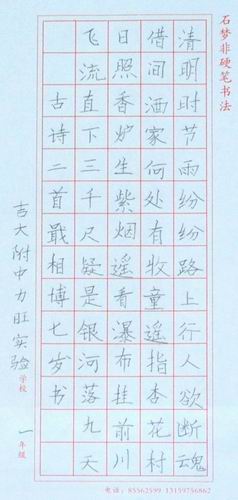 石梦非硬笔书法
清明时节雨纷纷路上行人欲断魂
借间洒家何处有牧童遥指杏花村
日照香炉生紫烟遥看瀑布挂前川
飞流直下三千尺疑是银河落九天
古诗二首戢相博七岁书
吉大附中力旺实验学校 一年级
电话：85562599 13159756862